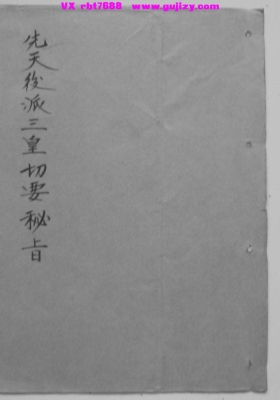 VX rbt7688 www.gujizy.com
先天後派三皇切要秘旨